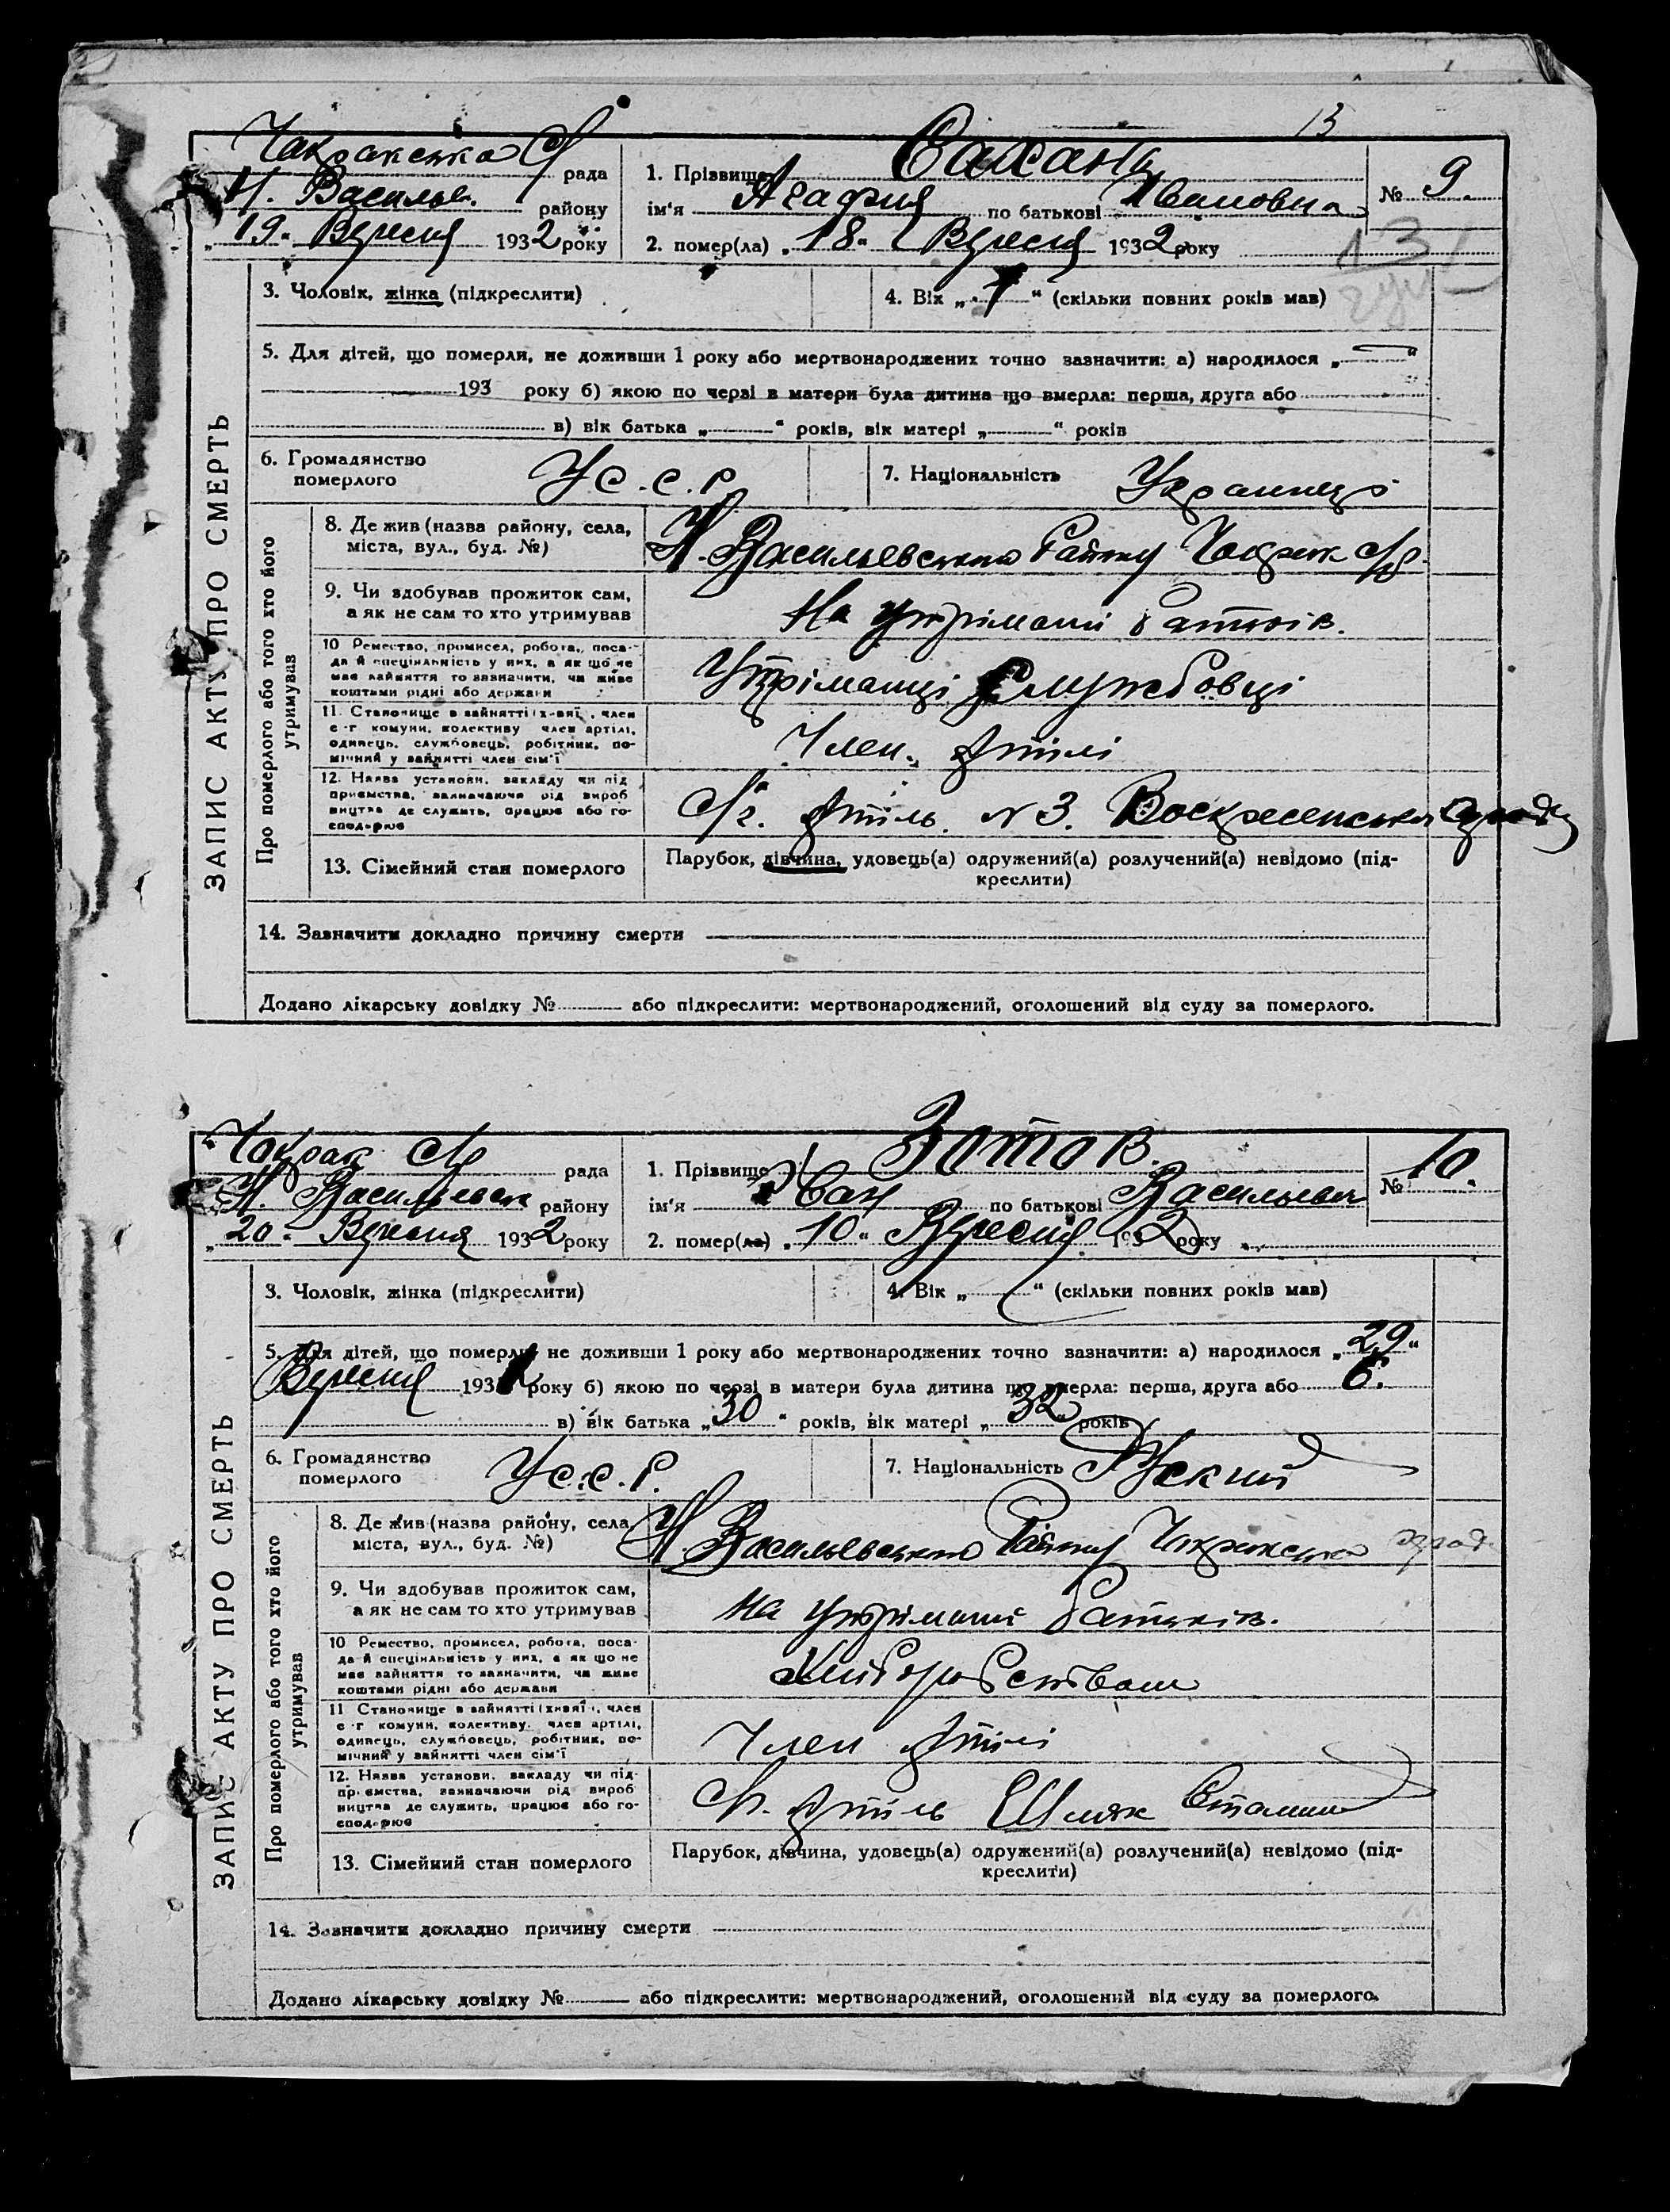 13
Чакракська С/р рада
Н. Васильев. району
„19“ Вересня 1932 року
1. Прізвище Сахань
ім‘я Агафия по батькові Ивановна
№ 9.
2. помер(ла) „18“ Вересня 1932 року
13
3. Чоловік, жінка (підкреслити)
4. Вік „ “ (скільки повних років мав)
5. Для дітей, що померли, не доживши 1 року або мертвонароджених точно зазначити: а) народилося „ “
193 року б) якою по черзі в матери була дитина що вмерла: перша, друга або
в) вік батька „ “ років, вік матері „ “ років
ЗАПИС АКТУ ПРО СМЕРТЬ
6. Громадянство померлого У.с.с.р
7. Національність Украинці
Про померлого або того хто його утримував
8. Де жив (назва району, села, міста, вул., буд. №)
Н. Васильевського Району Чакрак с/р.
9. Чи здобував прожиток сам, а як не сам то хто утримував
На утріманні батьків.
10 Ремество, промисел, робота, посада й спеціяльність у них, а як що не має зайняття то зазначити, чи живе коштами рідні або держави
Утріманці Службовці
11. Становище в зайнятті (х-вяї, член с-г комуни, колективу член артілі, одинець, службовець, робітник, помічний у зайнятті член сім‘ї
Член Артілі
12. Назва установи, закладу чи підприємства, зазначаючи рід виробництва де служить, працює або господарює
С/г. Артіль N 3. Воскресенської с/ради
13. Сімейний стан померлого
Парубок, дівчина, удовець(а) одружений(а) розлучений(а) невідомо (підкреслити)
14. Зазначити докладно причину смерти
Додано лікарську довідку № або підкреслити: мертвонароджений, оголошений від суду за померлого.
Чакрак с/р рада
Н. Васильевськ району
„20“ Вересня 1932 року
1. Прізвище Зотов.
ім‘я Иван по батькові Васильевич
№ 10.
2. помер(ла) „10“ Вересня 1932 року
3. Чоловік, жінка (підкреслити)
4. Вік „ “ (скільки повних років мав)
5. Для дітей, що померли, не доживши 1 року або мертвонароджених точно зазначити: а) народилося „29“
Вересня 193 року б) якою по черзі в матери була дитина що вмерла: перша, друга або 6.
в) вік батька „30“ років, вік матері „32“ років
ЗАПИС АКТУ ПРО СМЕРТЬ
6. Громадянство померлого У.с.с.р.
7. Національність Руский
Про померлого або того хто його утримував
8. Де жив (назва району, села, міста, вул., буд. №)
Н. Васильевського Району Чакракська с/рад.
9. Чи здобував прожиток сам, а як не сам то хто утримував
На утріманні батьків.
10 Ремество, промисел, робота, посада й спеціяльність у них, а як що не має зайняття то зазначити, чи живе коштами рідні або держави
Хліборобством
11 Становище в зайнятті (х-вяї, член с-г комуни, колективу, член артілі, одинець, службовець, робітник, помічний у зайнятті член сім‘ї
Член Артілі
12. Назва установи, закладу чи підприємства, зазначаючи рід виробництва де служить, працює або господарює
С/г. Артіль Шлях Сталина
13. Сімейний стан померлого
Парубок, дівчина, удовець(а) одружений(а) розлучений(а) невідомо (підкреслити)
14. Зазначити докладно причину смерти
Додано лікарську довідку № або підкреслити: мертвонароджений, оголошений від суду за померлого.